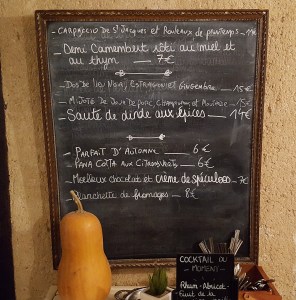 - CARPACCIO DE ST JACQUES et Rouleaux de printemps - 11€
- Demi Camembert rôti au miel et
au thym — 7€
- Dos de lieu noir, Estragon et GINGEMBRE - 15€
- MIJOTÉ DE JOUE DE PORC, CHAMPIGNONS et - 15€
Sauté de dinde aux épices - 14€
- PARFAIT D'AUTOMNE - 6€
- PANA COTTA AUX CITRONS VERTS - 6€
- Moelleux chocolat et crème de spéculoos - 7€
- Planchette de fromages - 8€
COCKTAIL DU
MOMENT
Rhum - Abricot -
fruit de la